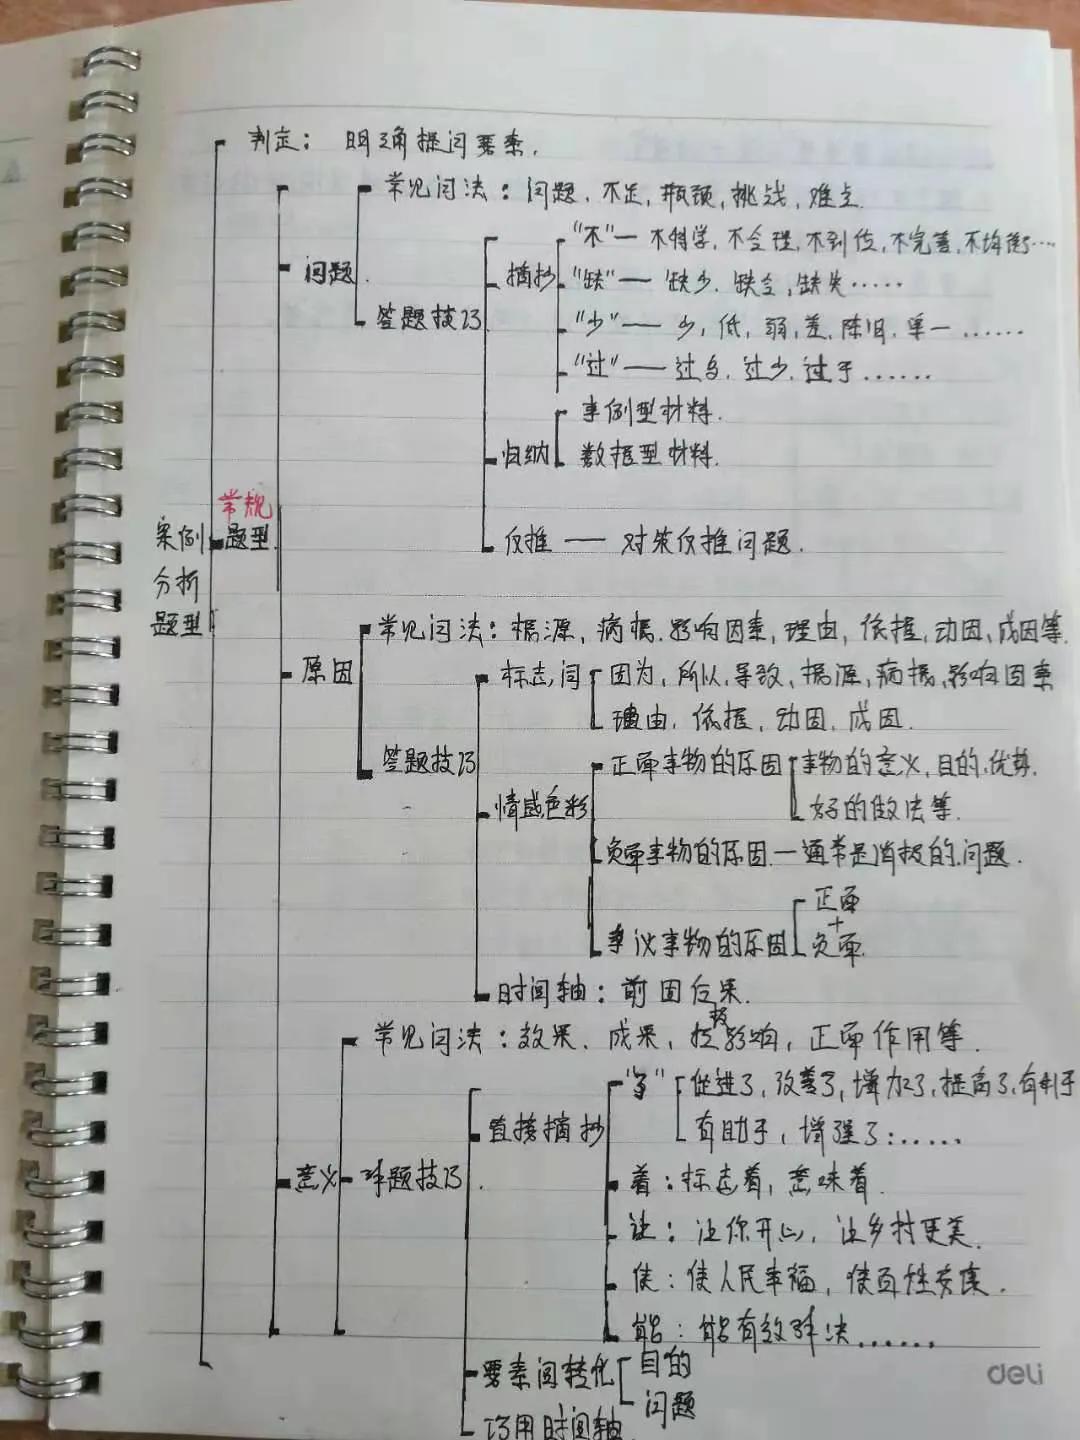 判定：明确提问要素.
常见问法：问题、不足,瓶颈,挑战,难点.
"不"— 不科学,不合理,不到位,不完善,不均衡…
问题.
摘抄
"缺"— 缺少、缺乏,缺失……
答题技巧
"少"— 少,低,弱,差,陈旧,单一……
"过"— 过多、过少、过于……
事例型材料.
归纳
数据型材料.
常规
案例
题型
反推 — 对策反推问题.
分析
题型
常见问法：根源,病根、影响因素,理由,依据,动因,成因等.
原因
标志词
因为,所以,导致,根源,病根,影响因素
理由,依据,动因,成因.
答题技巧
正面事物的原因
事物的意义,目的,优势.
情感色彩
好的做法等.
负面事物的原因 — 通常是消极的问题.
正面
+
争议事物的原因
负面
时间轴：前因后果.
常见问法：效果、成果,积极影响,正面作用等.
"了"
促进了,改善了,增加了,提高了,有利于
直接摘抄
有助于,增强了：……
意义
答题技巧
着：标志着,意味着.
让：让你开心,让乡村更美.
使：使人民幸福,使百姓安康.
能：能有效解决……
要素间转化
目的
问题
巧用时间轴
deli